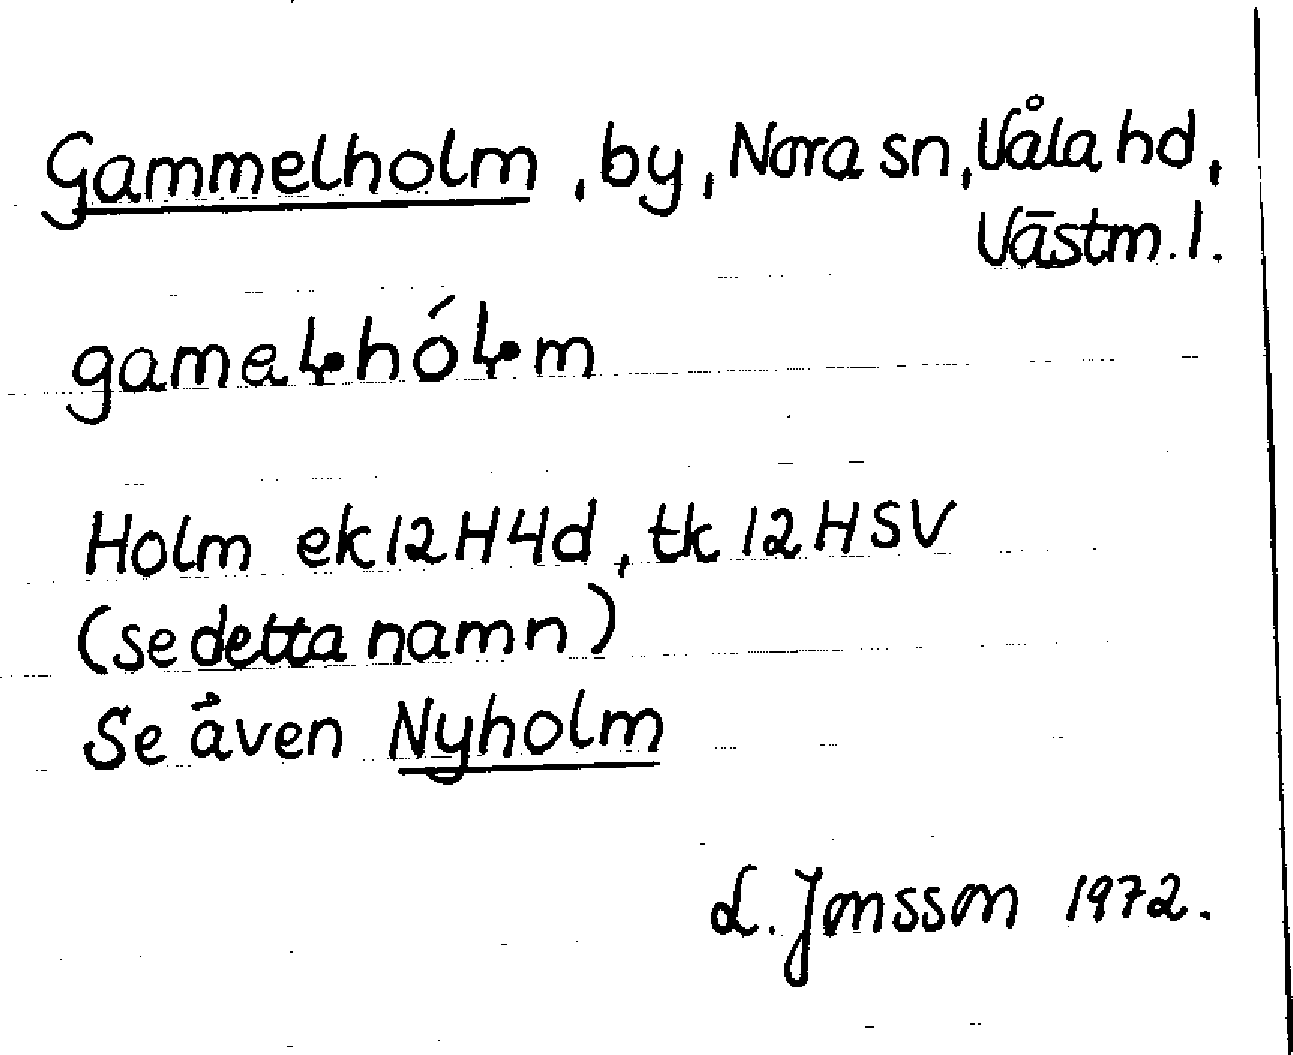 Gammelholm, by, Nora sn, Våla hd,
Västm. l.
gamaɫhóɫm
Holm ek 12H4d, tk 12HSV
(se detta namn)
Se även Nyholm
L. Jonsson 1972.